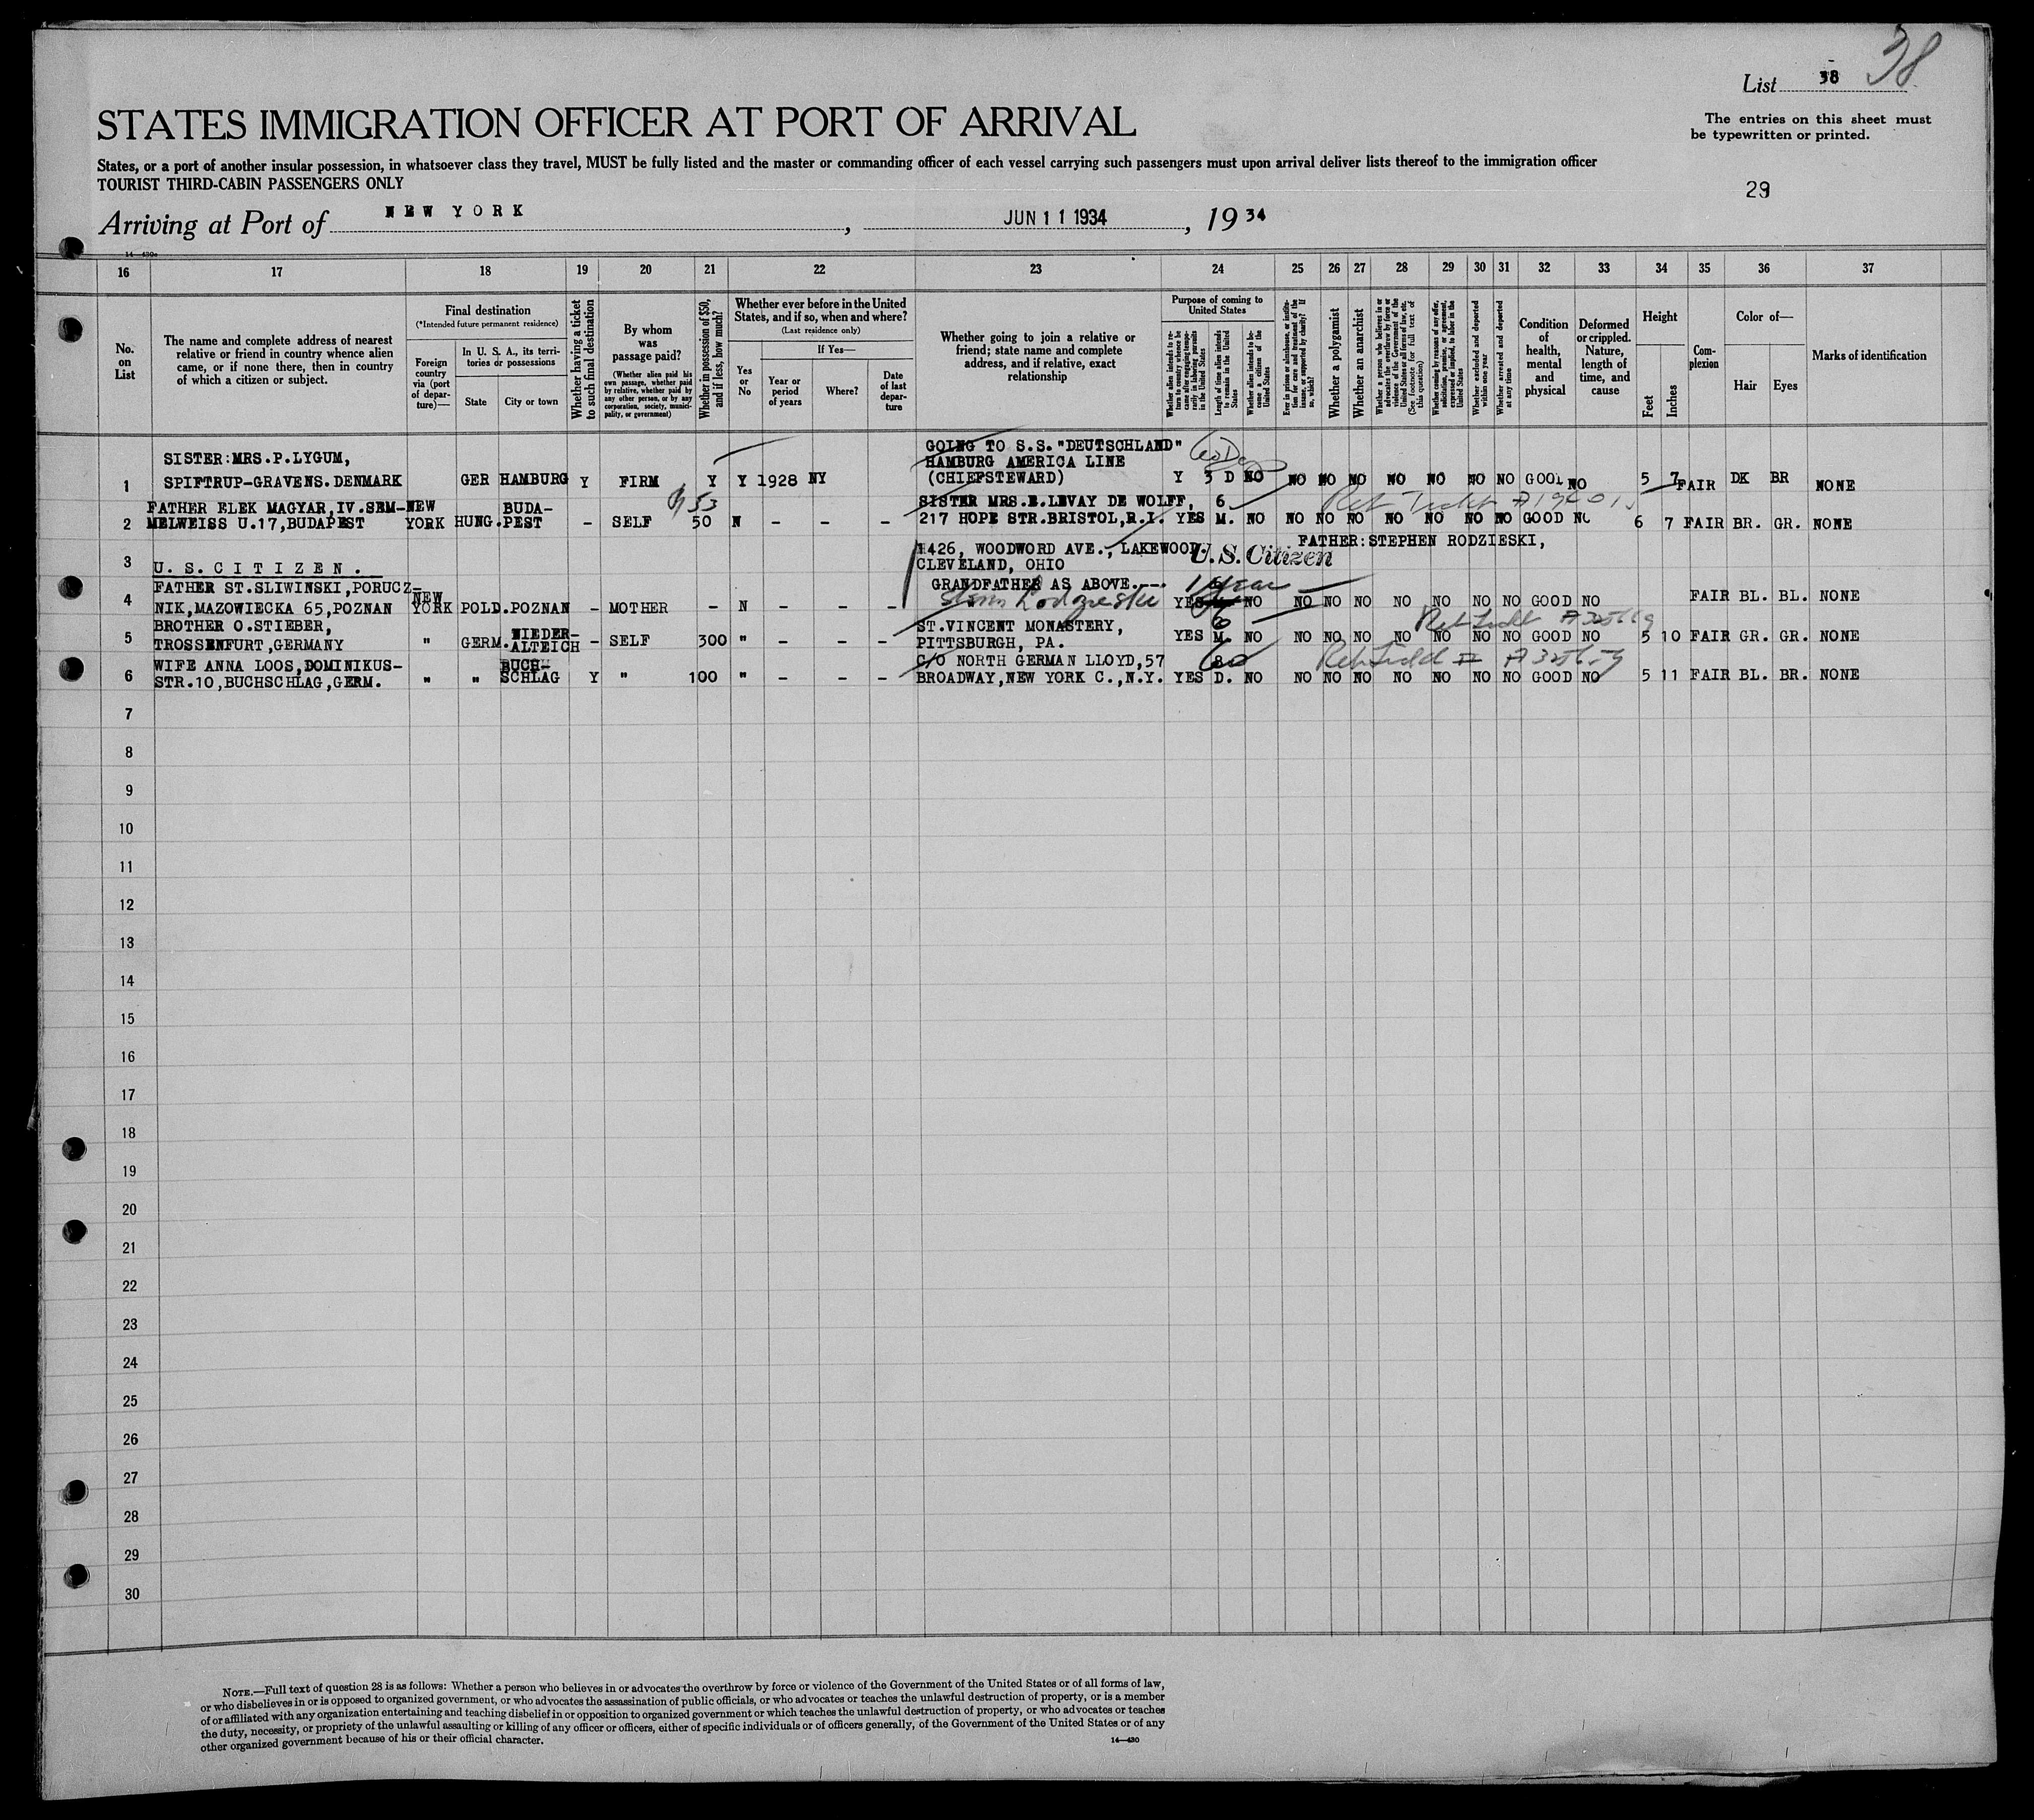 38
List 38
STATES IMMIGRATION OFFICER AT PORT OF ARRIVAL
The entries on this sheet must
be typewritten or printed.
States, or a port of another insular possession, in whatsoever class they travel, MUST be fully listed and the master or commanding officer of each vessel carrying such passengers must upon arrival deliver lists thereof to the immigration officer
TOURIST THIRD-CABIN PASSENGERS ONLY
29
Arriving at Port of NEW YORK, JUN 11 1934, 1934
14—430c
16 17 18 19 20 21 22 23 24 25 26 27 28 29 30 31 32 33 34 35 36 37
No.
on
List
The name and complete address of nearest
relative or friend in country whence alien
came, or if none there, then in country
of which a citizen or subject.
Final destination
(*Intended future permanent residence)
Foreign
country
via (port
of depar-
ture)—
In U. S. A., its terri-
tories or possessions
State
City or town
Whether having a ticket
to such final destination
By whom
was
passage paid?
(Whether alien paid his
own passage, whether paid
by relative, whether paid by
any other person, or by any
corporation, society, munici-
pality, or government)
Whether in possession of $50,
and if less, how much?
Whether ever before in the United
States, and if so, when and where?
(Last residence only)
Yes
or
No
If Yes—
Year or
period
of years
Where?
Date
of last
depar-
ture
Whether going to join a relative or
friend; state name and complete
address, and if relative, exact
relationship
Purpose of coming to
United States
Whether alien intends to re-
turn to country whence he
came after engaging tempo-
rarily in laboring pursuits
in the United States
Length of time alien intends
to remain in the United
States
Whether alien intends to be-
come a citizen of the
United States
Ever in prison or almshouse, or institu-
tion for care and treatment of the
insane, or supported by charity? If
so, which?
Whether a polygamist
Whether an anarchist
Whether a person who believes in or
advocates the overthrow by force or
violence of the Government of the
United States or all forms of law, etc.
(See footnote for full text of
this question)
Whether coming by reasons of any offer,
solicitation, promise, or agreement,
expressed or implied, to labor in the
United States
Whether excluded and deported
within one year
Whether arrested and deported
at any time
Condition
of
health,
mental
and
physical
Deformed
or crippled.
Nature,
length of
time, and
cause
Height
Feet
Inches
Com-
plexion
Color of—
Hair
Eyes
Marks of identification
1 SISTER:MRS.P.LYGUM,
SPIFTRUP-GRAVENS.DENMARK GER HAMBURG Y FIRM Y Y 1928 NY
GOING TO S.S."DEUTSCHLAND"
HAMBURG AMERICA LINE
(CHIEFSTEWARD) Y 3 D NO NO NO NO NO NO NO NO GOOD NO 5 7 FAIR DK BR NONE
60 D
2 FATHER ELEK MAGYAR,IV.SEM-
MELWEISS U.17,BUDAPEST NEW
YORK HUNG. BUDA-
PEST - SELF 50 N - - -
$53
SISTER MRS.E.LEVAY DE WOLFF, 6
217 HOPE STR.BRISTOL,R.I. YES M. NO NO NO NO NO NO NO NO GOOD NO 6 7 FAIR BR. GR. NONE
3 U.S.CITIZEN.
1426, WOODWORD AVE., LAKEWOOD.
CLEVELAND, OHIO
U.S. Citizen
FATHER:STEPHEN RODZIESKI,
4 FATHER ST.SLIWINSKI,PORUCZ-
NIK,MAZOWIECKA 65,POZNAN NEW
YORK POLD.POZNAN - MOTHER - N - - -
GRANDFATHER AS ABOVE.--.
1 year
YES NO NO NO NO NO NO NO NO GOOD NO FAIR BL. BL. NONE
5 BROTHER O.STIEBER,
TROSSENFURT,GERMANY " GERM. NIEDER-
ALTEICH - SELF 300 " - - -
ST.VINCENT MONASTERY, 6
PITTSBURGH, PA. YES M. NO NO NO NO NO NO NO NO GOOD NO 5 10 FAIR GR. GR. NONE
6 WIFE ANNA LOOS,DOMINIKUS-
STR.10,BUCHSCHLAG,GERM. " " BUCH-
SCHLAG Y " 100 " - - -
C/O NORTH GERMAN LLOYD,57
BROADWAY,NEW YORK C.,N.Y. YES D. NO NO NO NO NO NO NO NO GOOD NO 5 11 FAIR BL. BR. NONE
60
7
8
9
10
11
12
13
14
15
16
17
18
19
20
21
22
23
24
25
26
27
28
29
30
NOTE.—Full text of question 28 is as follows: Whether a person who believes in or advocates the overthrow by force or violence of the Government of the United States or of all forms of law,
or who disbelieves in or is opposed to organized government, or who advocates the assassination of public officials, or who advocates or teaches the unlawful destruction of property, or is a member
of or affiliated with any organization entertaining and teaching disbelief in or opposition to organized government or which teaches the unlawful destruction of property, or who advocates or teaches
the duty, necessity, or propriety of the unlawful assaulting or killing of any officer or officers, either of specific individuals or of officers generally, of the Government of the United States or of any
other organized government because of his or their official character.
14—430